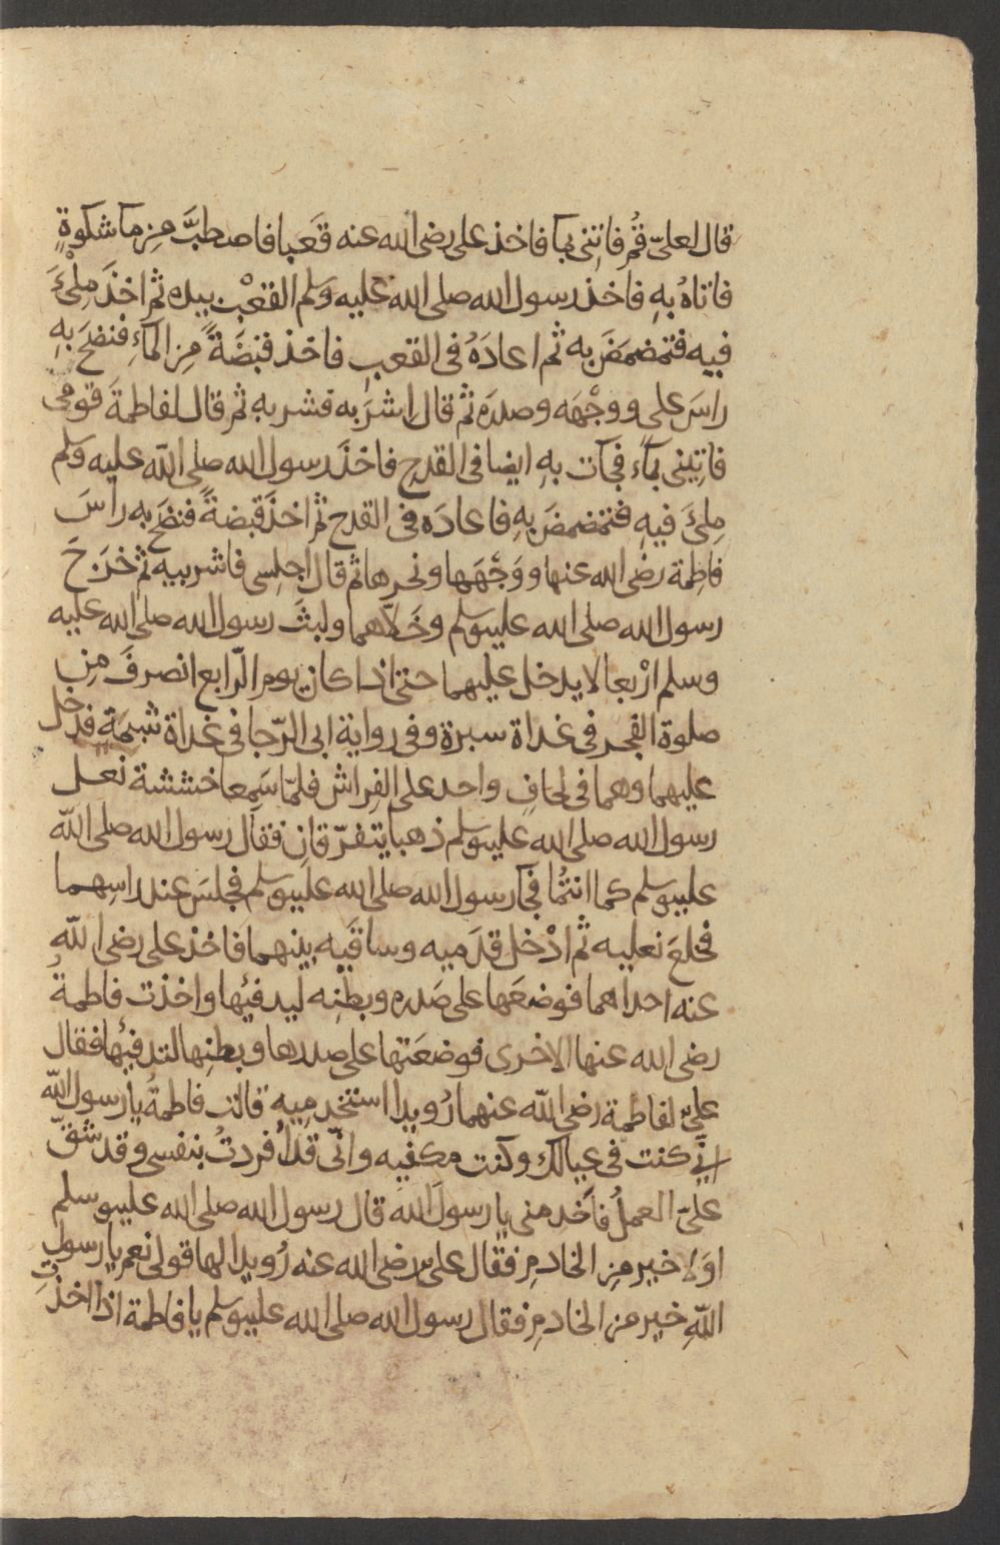 قال لعليّ قُم فاتِنى بمآ فاخذ على رضى الله عنه قَعبا فاصطبَّ مِن مآ شكوةٍ
فاتاهُ بهِ فاخذ رسول الله صلى الله عليه وسلم القعْب بيده ثم اخذَ مِلْئَ
فيه فتمضمَضَ به ثم اعادَهُ فى القعبِ فاخذ قبْضَةً مِن المآءِ فنضحَ بهِ
راسَ على ووجْهَه وصدرَه ثم قال اشرَبه فشربه ثم قال لفاطمةَ قومى
فاتِينى بمآءٍ فجآت بهِ ايضا فى القدحِ فاخذَ رسول الله صلى الله عليه وسلم
مِلئَ فيهِ فتمضمضَ بهِ فاعادَه فى القدح ثم اخذَ قبضةً فنضَحَ به راسَ
فاطِمة رضى الله عنها ووَجْهَها ونحرها ثم قال اجلِسى فاشربيه ثم خرَجَ
رسول الله صلى الله عليه وسلم وخَلّاهما ولبثَ رسول الله صلى الله عليه
وسلم ارْبعا لا يدخل عليهما حتى اذا كان يوم الرّابع انصرفَ مِن
صلوة الفجر فى غداة سبرة وفى رواية ابى الرّجا فى غداة شبِمَةٍ فدخل
عليهما وهما فى لحافٍ واحد على الفِراش فلمّا سَمِعا خششة نعل
رسول الله صلى الله عليه وسلم ذهبا يتفرّقان فقال رسول الله صلى الله
عليه وسلم كما انتُما فجآ رسول الله صلى الله عليه وسلم فجلسَ عند راسِهما
فخلعَ نعليه ثم ادْخل قدَميه وساقَيه بينهما فاخذ على رضى الله
عنه احداهما فوضعَها على صَدره وبطنِه ليدفيُها واخذت فاطمةُ
رضى الله عنها الاخرى فوضعَتها على صدرها وبطنِها لتدفيُها فقال
علىّ لفاطمة رضى الله عنهما رُويدا استخدِميه قالت فاطمةُ يا رسول الله
انّى كنت فى عيالك وكنت مكفيه وانّى قد افردتُ بنفسى وقد شقّ
علىّ العملُ فاَخدمنى يا رسولَ الله قال رسول الله صلى الله عليه وسلم
اوَلا خير مِن الخادمِ فقال علىّ رضى الله عنه رُويدا لها قولى نعم يا رسول
اللهِ خير من الخادمِ فقال رسول الله صلى الله عليه وسلم يا فاطمة اذا اخذتِ